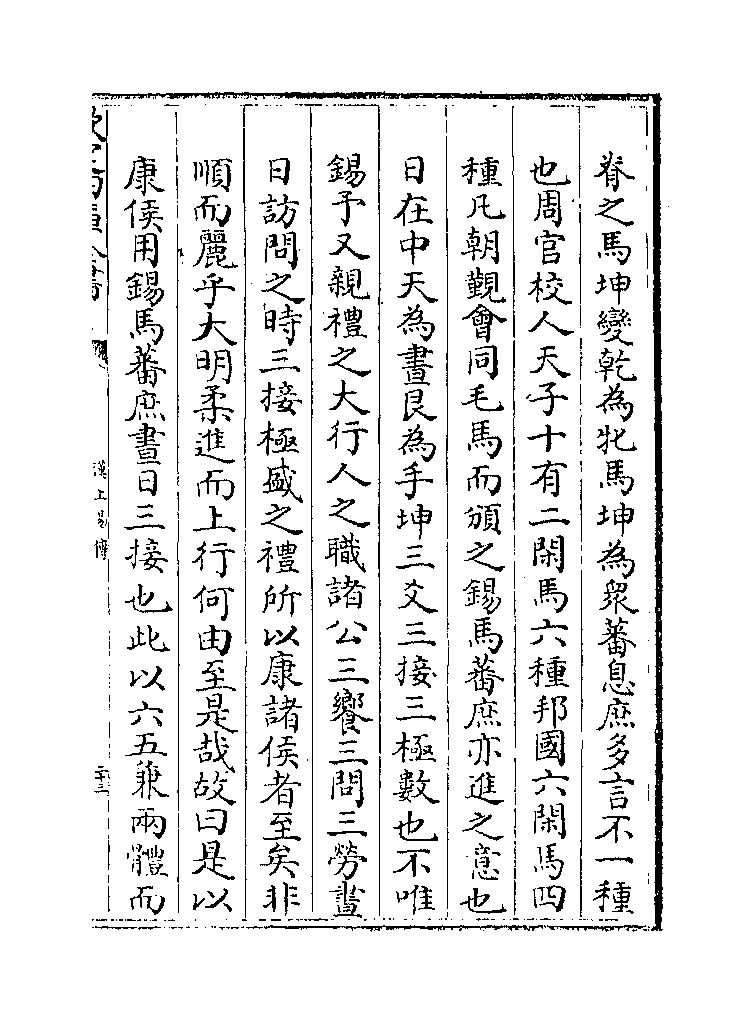 脊之馬坤變乾為牝馬坤為衆蕃息庶多言不一種
也周官校人天子十有二閑馬六種邦國六閑馬四
種凡朝覲會同毛馬而頒之錫馬蕃庶亦進之意也
日在中天為晝艮為手坤三爻三接三極數也不唯
錫予又親禮之大行人之職諸公三饗三問三勞晝
日訪問之時三接極盛之禮所以康諸侯者至矣非
順而麗乎大明柔進而上行何由至是哉故曰是以
康侯用錫馬蕃庶晝日三接也此以六五兼兩體而
漢上易傳
二十三